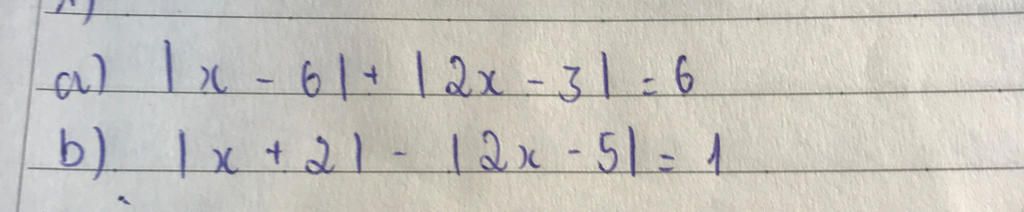 a) |x - 6| + |2x - 3| = 6
b) |x + 2| - |2x - 5| = 1